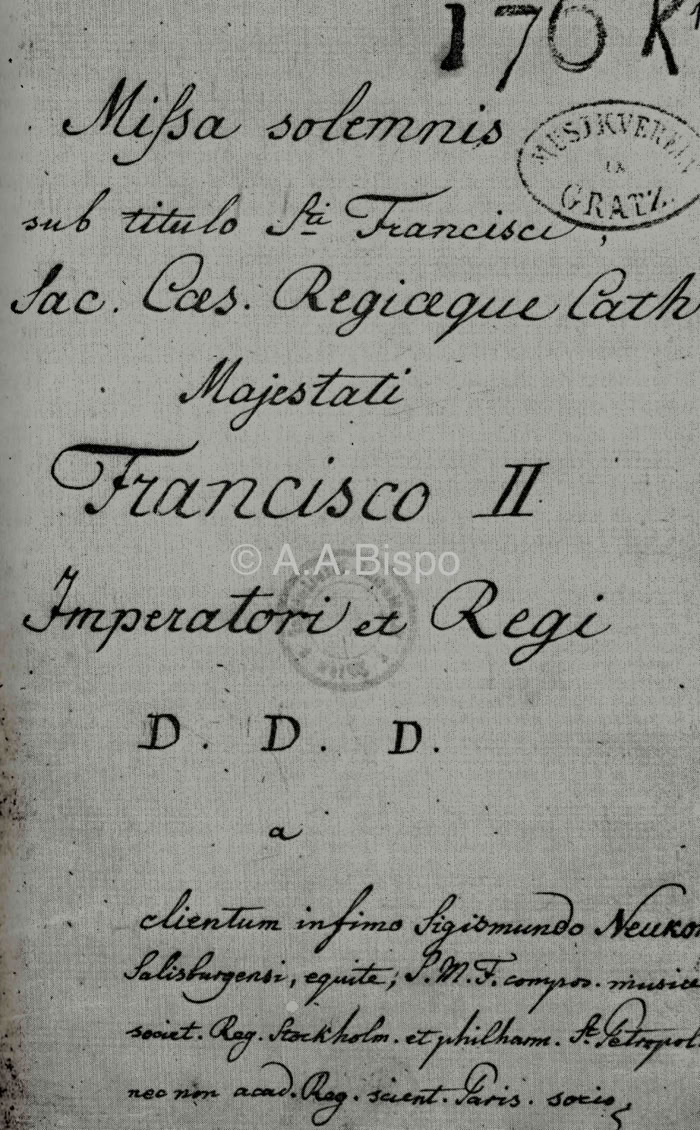 176
Missa solemnis
MUSIKVEREIN
IN
GRATZ.
sub titulo Sti Francisci,
Sac. Cæs. Regiæque Cath
Majestati
Francisco II
© A.A.Bispo
Imperatori et Regi
D. D. D.
a
clientum infimo Sigismundo Neukom
Salisburgensi, equite; S. M. F. compos. musices
societ. Reg. Stockholm. et philharm. St. Petropol.
nec non acad. Reg. scient. Paris. socio